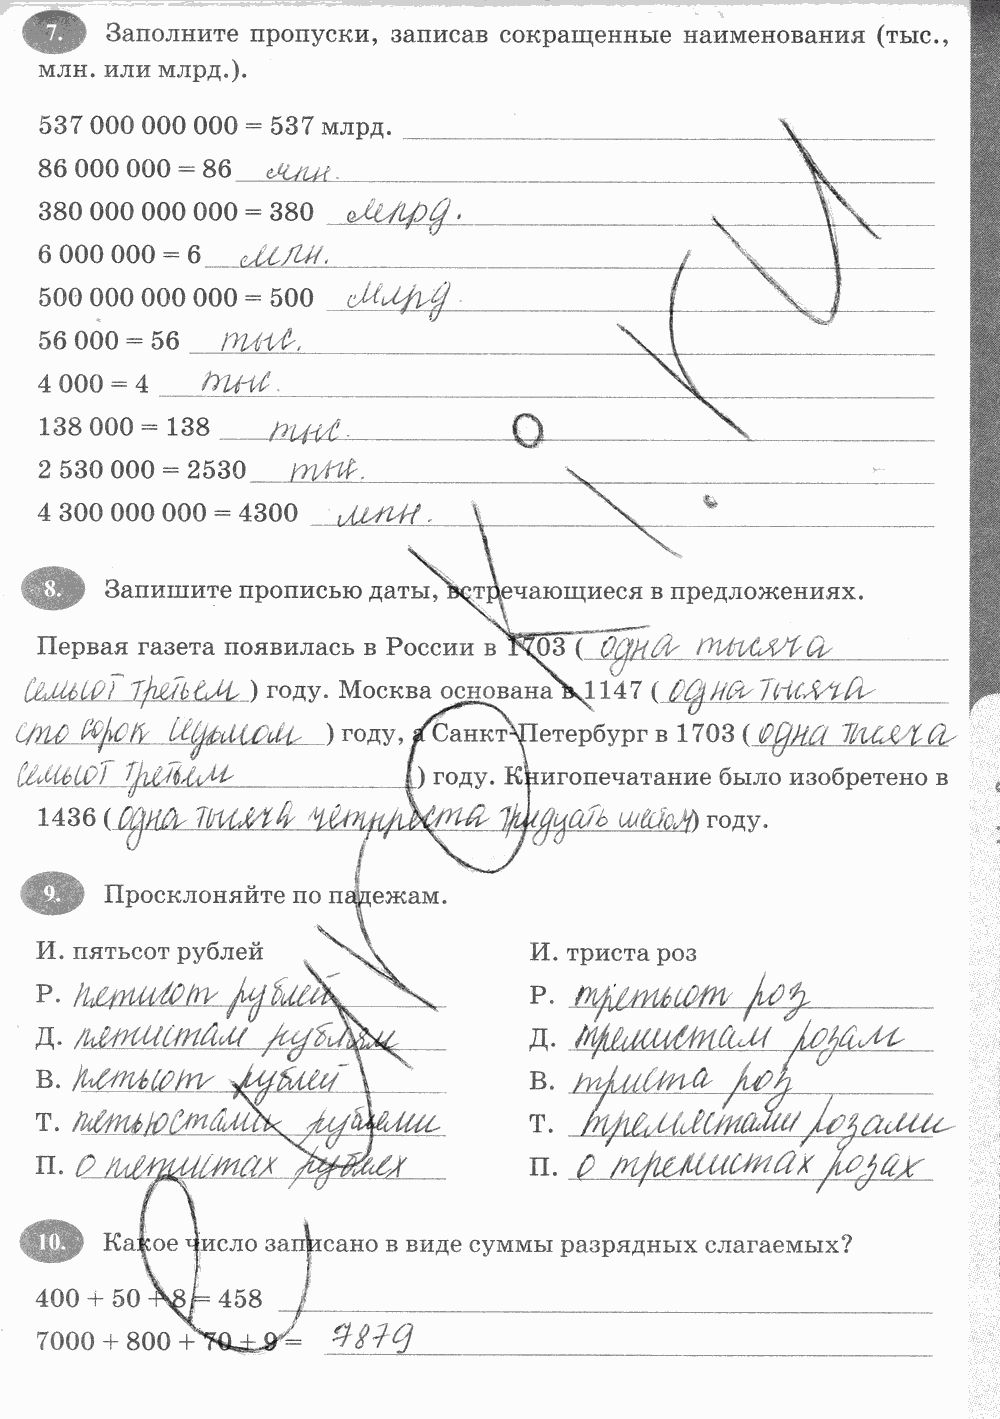 7. Заполните пропуски, записав сокращенные наименования (тыс.,
млн. или млрд.).
537 000 000 000 = 537 млрд.
86 000 000 = 86 млн.
380 000 000 000 = 380 млрд.
6 000 000 = 6 млн.
500 000 000 000 = 500 млрд.
56 000 = 56 тыс.
4 000 = 4 тыс.
138 000 = 138 тыс.
2 530 000 = 2530 тыс.
4 300 000 000 = 4300 млн.
8. Запишите прописью даты, встречающиеся в предложениях.
Первая газета появилась в России в 1703 ( одна тысяча
семьсот третьем ) году. Москва основана в 1147 ( одна тысяча
сто сорок седьмом ) году, а Санкт-Петербург в 1703 ( одна тысяча
семьсот третьем ) году. Книгопечатание было изобретено в
1436 ( одна тысяча четыреста тридцать шестом) году.
9. Просклоняйте по падежам.
И. пятьсот рублей
Р. пятисот рублей
Д. пятистам рублям
В. пятьсот рублей
Т. пятьюстами рублями
П. о пятистах рублях
И. триста роз
Р. трехсот роз
Д. тремстам розам
В. триста роз
Т. тремястами розами
П. о трехстах розах
10. Какое число записано в виде суммы разрядных слагаемых?
400 + 50 + 8 = 458
7000 + 800 + 70 + 9 = 7879